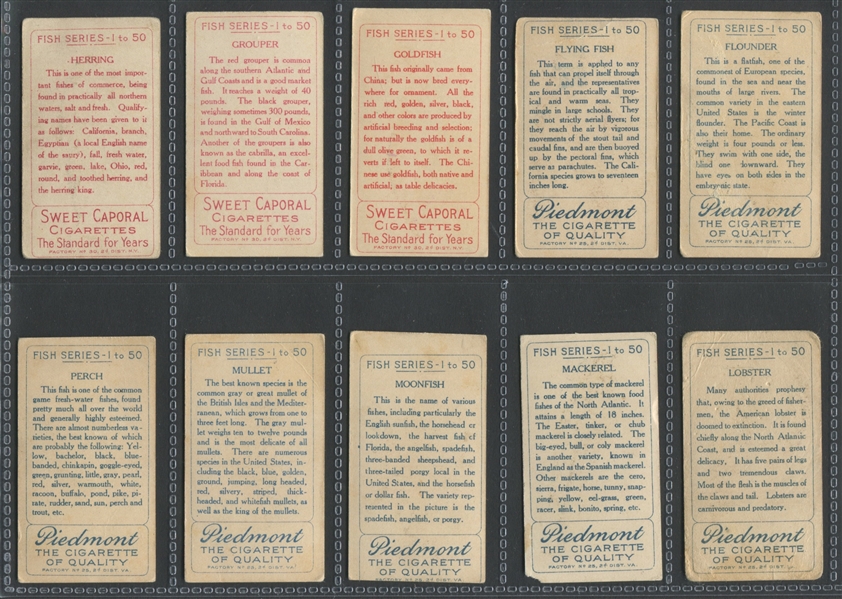 FISH SERIES-1 to 50
HERRING
This is one of the most impor-
tant fishes of commerce, being
found in practically all northern
waters, salt and fresh. Qualify-
ing names have been given to it
as follows: California, branch,
Egyptian (a local English name
of the saury), fall, fresh water,
garvie, green, lake, Ohio, red,
round, and toothed herring, and
the herring king.
SWEET CAPORAL
CIGARETTES
The Standard for Years
FACTORY Nº 30, 2ᴰ DIST. N.Y.
FISH SERIES-1 to 50
GROUPER
The red grouper is common
along the southern Atlantic and
Gulf Coasts and is a good market
fish. It reaches a weight of 40
pounds. The black grouper,
weighing sometimes 300 pounds,
is found in the Gulf of Mexico
and northward to South Carolina.
Another of the groupers is also
known as the cabrilla, an excel-
lent food fish found in the Car-
ibbean and along the coast of
Florida.
SWEET CAPORAL
CIGARETTES
The Standard for Years
FACTORY Nº 30, 2ᴰ DIST. N.Y.
FISH SERIES-1 to 50
GOLDFISH
This fish originally came from
China; but is now bred every-
where for ornament. All the
rich red, golden, silver, black,
and other colors are produced by
artificial breeding and selection;
for naturally the goldfish is of a
dull olive green, to which it re-
verts if left to itself. The Chi-
nese use goldfish, both native and
artificial; as table delicacies.
SWEET CAPORAL
CIGARETTES
The Standard for Years
FACTORY Nº 30, 2ᴰ DIST. N.Y.
FISH SERIES-1 to 50
FLYING FISH
This term is applied to any
fish that can propel itself through
the air, and the representatives
are found in practically all trop-
ical and warm seas. They
mingle in large schools. They
are not strictly aerial flyers; for
they reach the air by vigorous
movements of the stout tail and
caudal fins, and are then buoyed
up by the pectoral fins, which
serve as parachutes. The Cali-
fornia species grows to seventeen
inches long.
Piedmont
THE CIGARETTE
OF QUALITY
FACTORY Nº 25, 2ᴰ DIST. VA.
FISH SERIES-1 to 50
FLOUNDER
This is a flatfish, one of the
commonest of European species,
found in the sea and near the
mouths of large rivers. The
common variety in the eastern
United States is the winter
flounder. The Pacific Coast is
also their home. The ordinary
weight is four pounds or less.
They swims with one side, the
blind one downward. They
have eyes on both sides in the
embryonic state.
Piedmont
THE CIGARETTE
OF QUALITY
FACTORY Nº 25, 2ᴰ DIST. VA.
FISH SERIES-1 to 50
PERCH
This fish is one of the common
game fresh-water fishes, found
pretty much all over the world
and generally highly esteemed.
There are almost numberless va-
rieties, the best known of which
are probably the following: Yel-
low, bachelor, black, blue-
banded, chinkapin, goggle-eyed,
green, grunting, little, gray, pearl,
red, silver, warmouth, white,
racoon, buffalo, pond, pike, pi-
rate, rudder, sand, sun, perch and
trout, etc.
Piedmont
THE CIGARETTE
OF QUALITY
FACTORY Nº 25, 2ᴰ DIST. VA.
FISH SERIES-1 to 50
MULLET
The best known species is the
common gray or great mullet of
the British Isles and the Mediter-
ranean, which grows from one to
three feet long. The gray mul-
let weighs ten to twelve pounds
and is the most delicate of all
mullets. There are numerous
species in the United States, in-
cluding the black, blue, golden,
ground, jumping, long headed,
red, silvery, striped, thick-
headed, and whitefish mullets, as
well as the king of the mullets.
Piedmont
THE CIGARETTE
OF QUALITY
FACTORY Nº 25, 2ᴰ DIST. VA.
FISH SERIES-1 to 50
MOONFISH
This is the name of various
fishes, including particularly the
English sunfish, the horsehead or
lookdown, the harvest fish of
Florida, the angelfish, spadefish,
three-banded sheepshead, and
three-tailed porgy local in the
United States, and the horsefish
or dollar fish. The variety rep-
resented in the picture is the
spadefish, angelfish, or porgy.
Piedmont
THE CIGARETTE
OF QUALITY
FISH SERIES-1 to 50
MACKEREL
The common type of mackerel
is one of the best known food
fishes of the North Atlantic. It
attains a length of 18 inches.
The Easter, tinker, or chub
mackerel is closely related. The
big-eyed, bull, or coly mackerel
is another variety, known in
England as the Spanish mackerel.
Other mackerels are the cero,
sierra, frigate, horse, tunny, snap-
ping, yellow, eel-grass, green,
racer, slink, bonito, spring, etc.
Piedmont
THE CIGARETTE
OF QUALITY
FACTORY Nº 25, 2ᴰ DIST. VA.
FISH SERIES-1 to 50
LOBSTER
Many authorities prophesy
that, owing to the greed of fisher-
men, the American lobster is
doomed to extinction. It is found
chiefly along the North Atlantic
Coast, and is esteemed a great
delicacy. It has five pairs of legs
and two tremendous claws.
Most of the flesh is the muscles of
the claws and tail. Lobsters are
carnivorous and predatory.
Piedmont
THE CIGARETTE
OF QUALITY
FACTORY Nº 25, 2ᴰ DIST. VA.